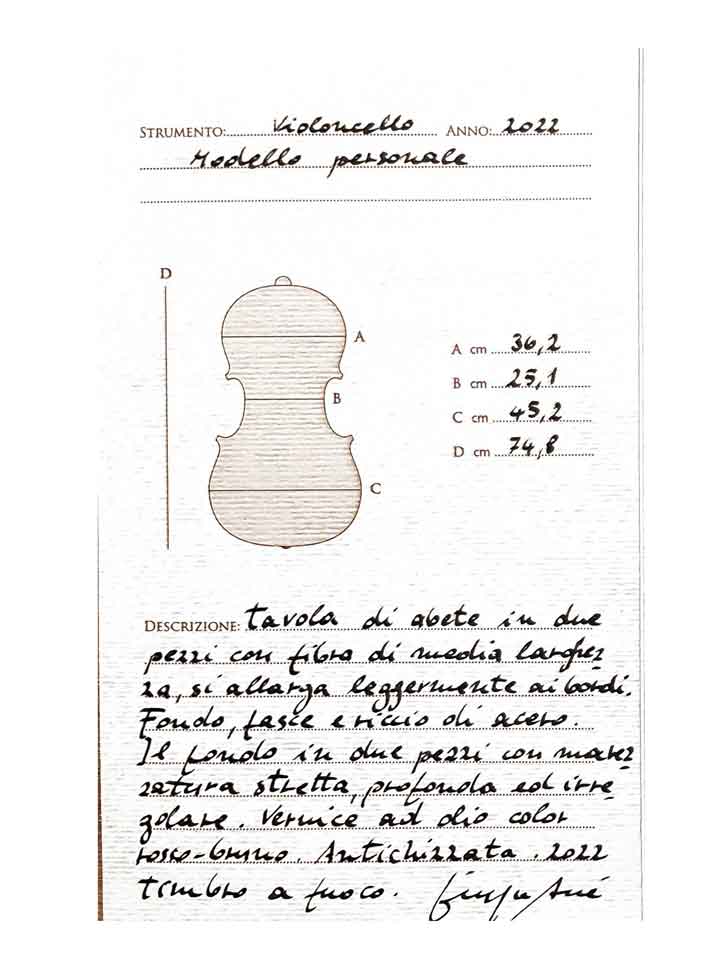 STRUMENTO: Violoncello ANNO: 2022
Modello personale
D
A
B
C
A cm 36,2
B cm 25,1
C cm 45,2
D cm 74,8
DESCRIZIONE: Tavola di abete in due
pezzi con fibra di media larghez
za, si allarga leggermente ai bordi.
Fondo, fasce e riccio di acero.
Il fondo in due pezzi con marez
zatura stretta, profonda ed irre
golare. Vernice ad olio color
rosso-bruno. Antichizzata. 2022
timbro a fuoco.